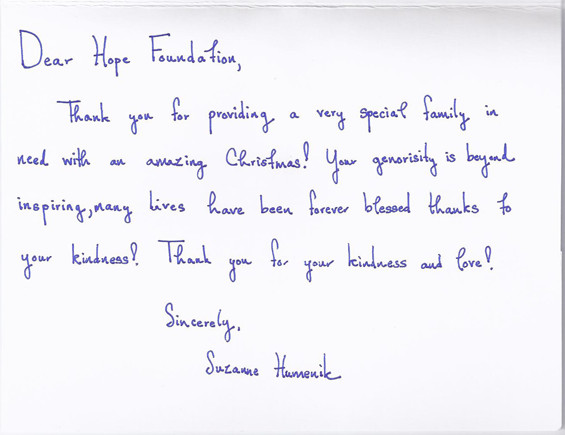 Dear Hope Foundation,
Thank you for providing a very special family in
need with an amazing Christmas! Your genorisity is beyond
inspiring, many lives have been forever blessed thanks to
your kindness! Thank you for your kindness and love!
Sincerely,
Suzanne Humenik